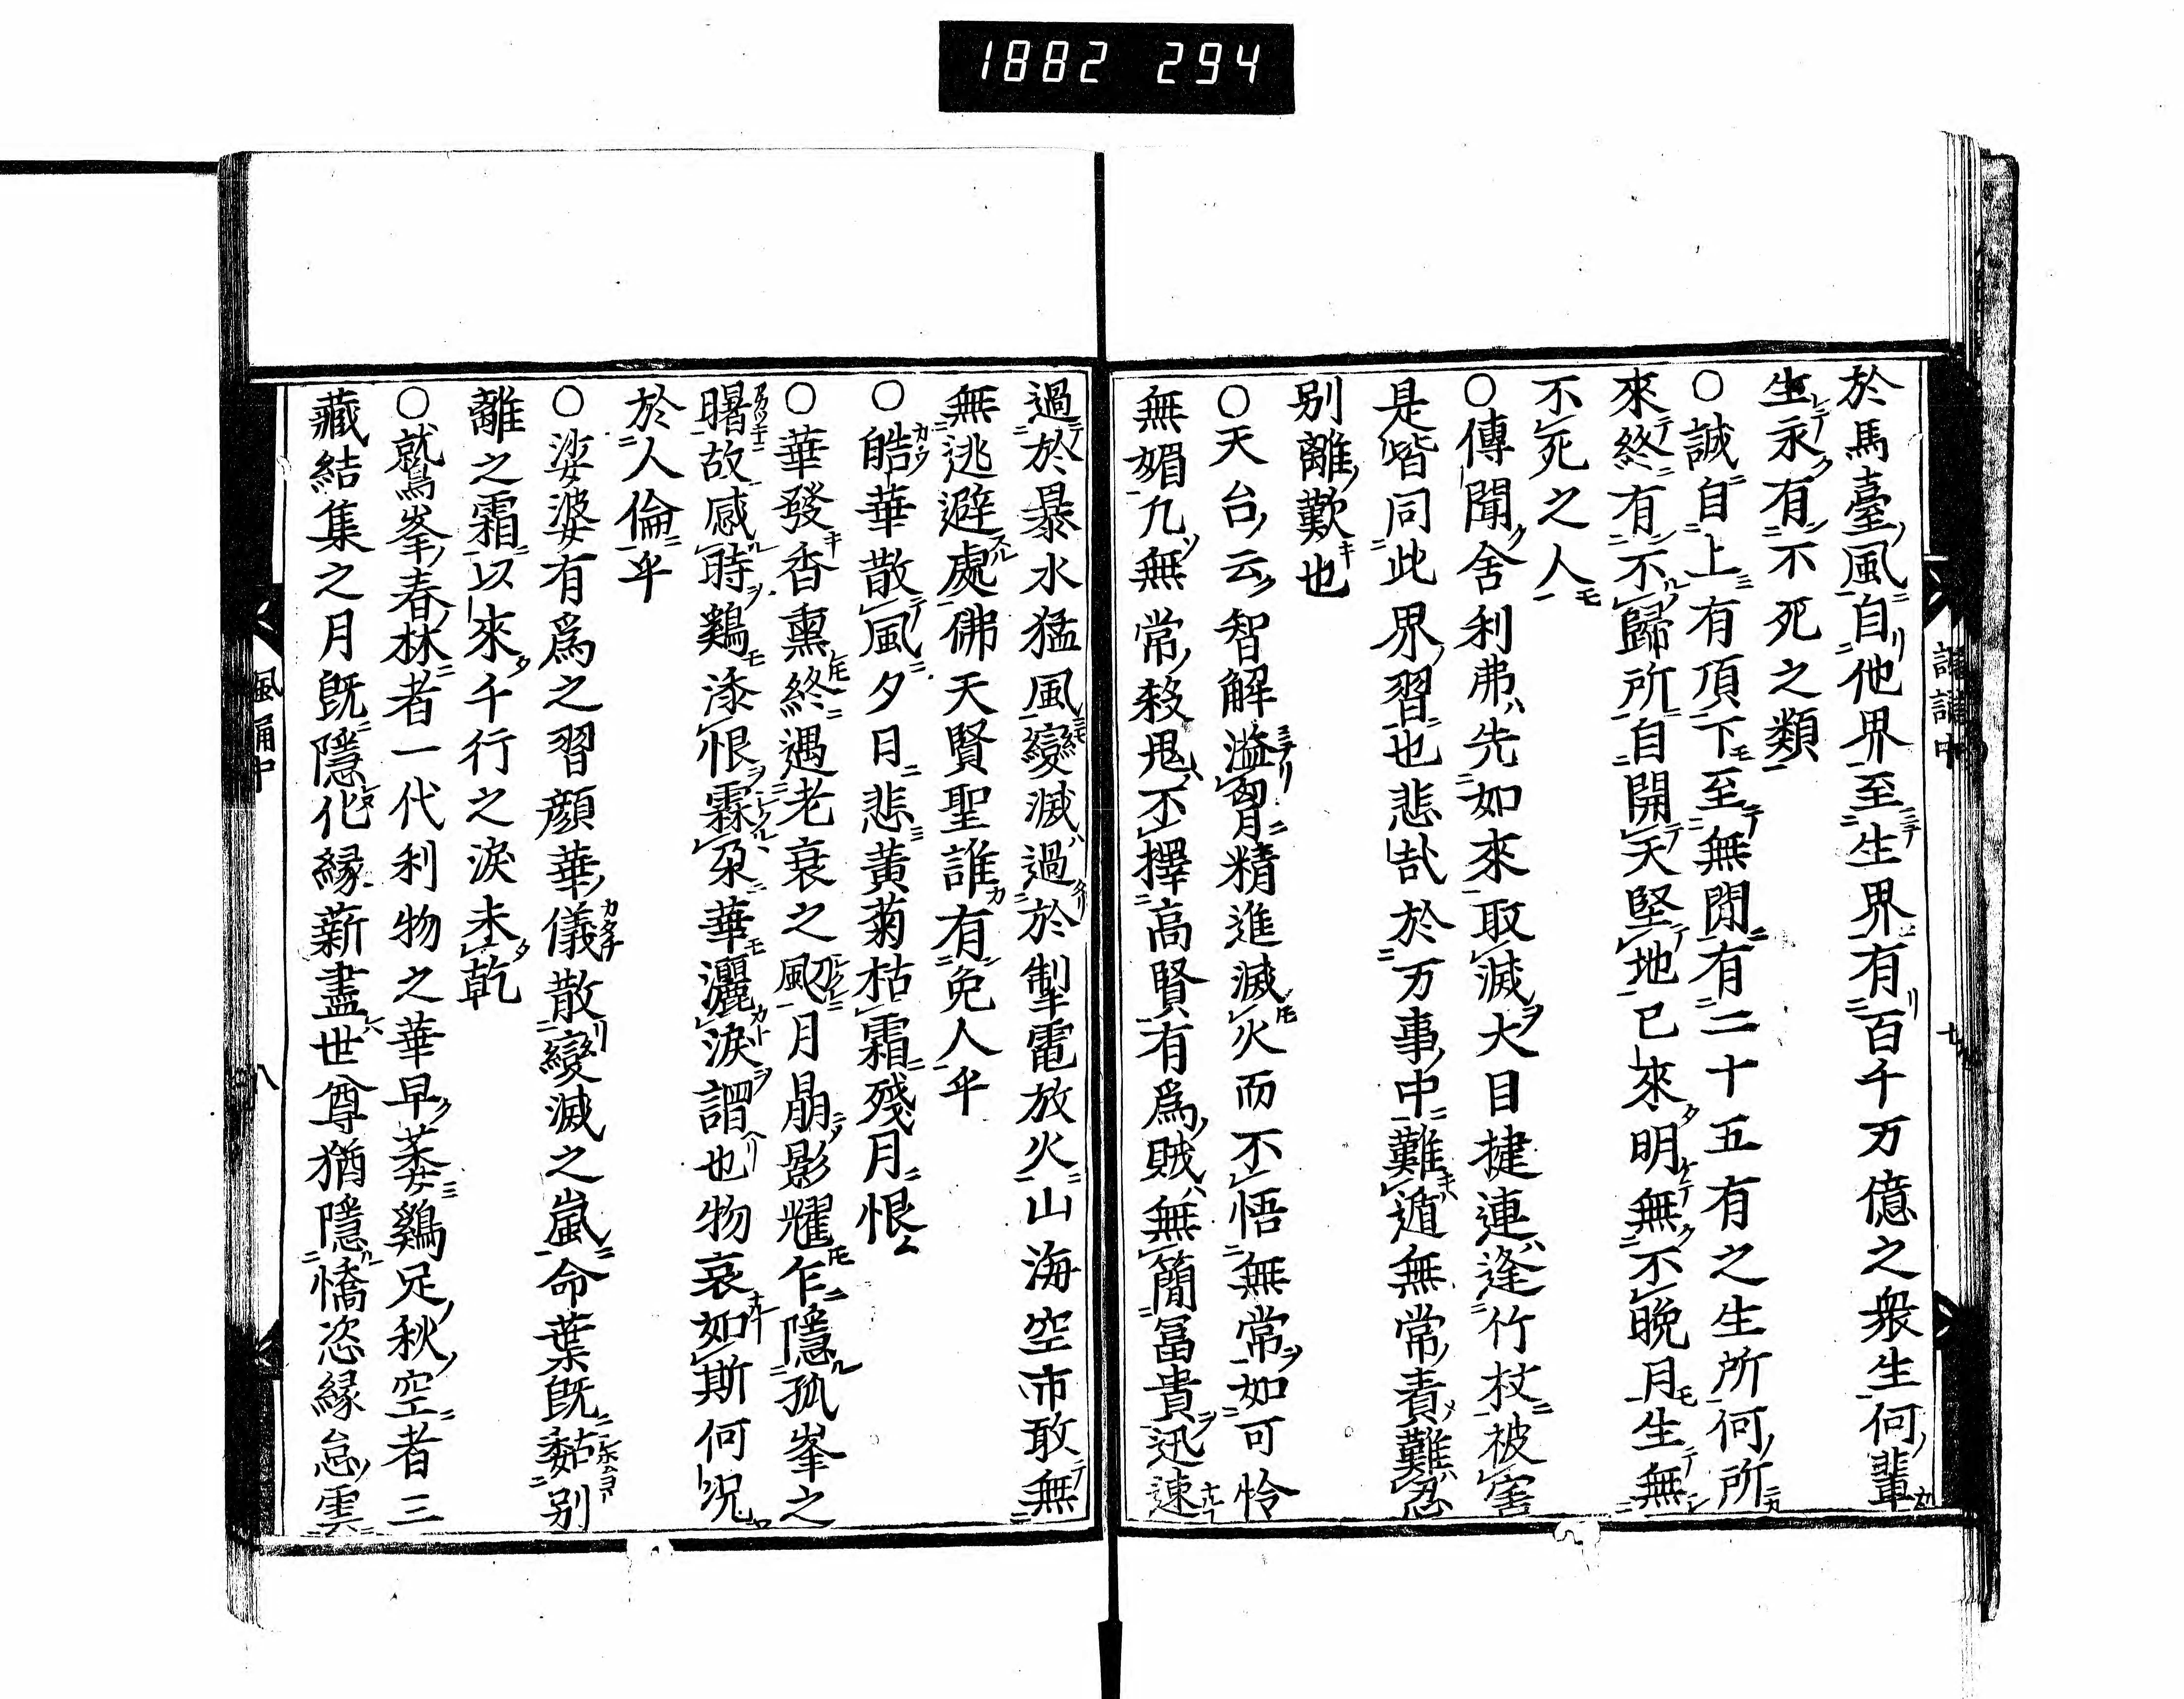 1882 294
於馬臺風自他界至生界有百千万億之衆生何輩
生永有不死之類
○誠自上有頂下至無間有二十五有之生所何所
來終有不歸所自開天堅地已來明無不晩月生無
不死之人
○傳聞舍利弗先如來取滅大目揵連逢竹杖被害
是皆同此界習也悲哉於万事中難遁無常責難忍
別離歎也
○天台云智解溢胷精進滅火而不悟無常如可怜
無媚九無常殺鬼不擇高賢有爲賊無簡冨貴迅速
過於暴水猛風變滅過於掣電放火山海空市敢無
無逃避處佛天賢聖誰有免人乎
○皓華散風夕月悲黄菊枯霜殘月恨
○華發香熏終遇老衰之風月朗影耀乍隱孤峯之
曙故感時鷄添恨霖朶華灑淚謂也物哀如斯何况
於人倫乎
○娑婆有爲之習顔華儀散變滅之嵐命葉既黏別
離之霜以來千行之淚未乾
○鷲峯春林者一代利物之華早萎鷄足秋空者三
藏結集之月既隱化縁薪盡世尊猶隱憍恣縁怠雲
風誦中
八